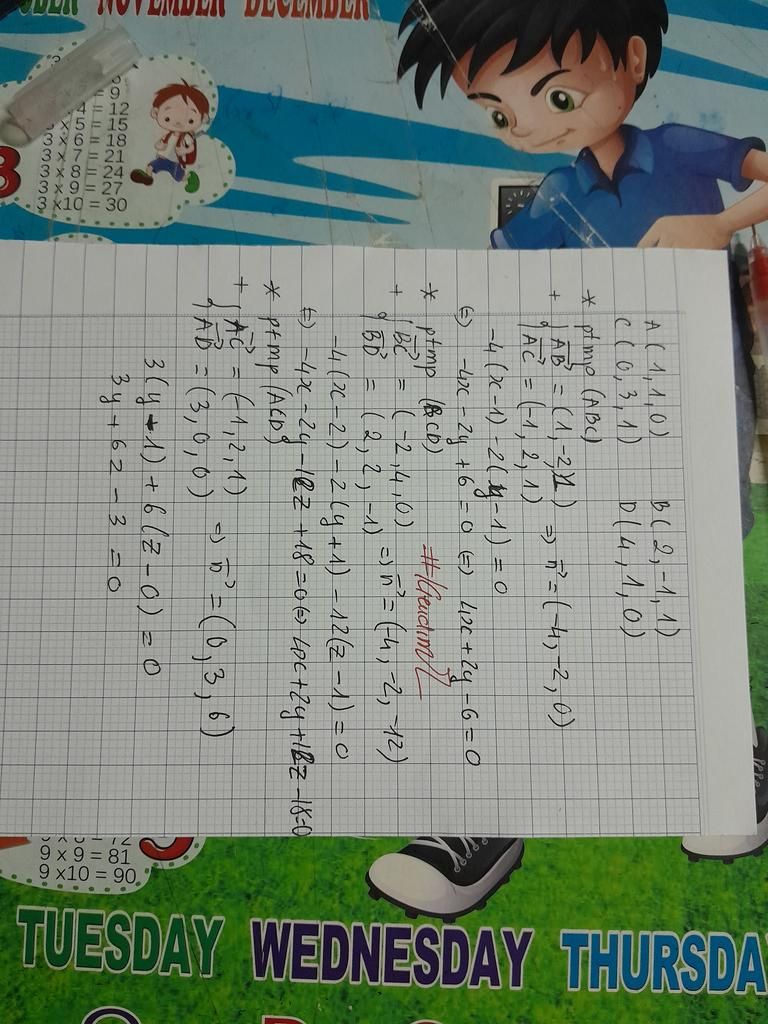 BER NOVEMBER DECEMBER
= 9
4 = 12
3 x 5 = 15
3 x 6 = 18
3 x 7 = 21
3 x 8 = 24
3 x 9 = 27
3 x10 = 30
3
A(1,1,0) B(2,-1,1)
C(0,3,1) D(4,1,0)
* ptmp (ABC)
+ { AB→ = (1,-2,1)
AC→ = (-1,2,1) => n→ = (-4,-2,0)
-4(x-1) -2(y-1) = 0
(=) -4x - 2y + 6 = 0 (=) 4x + 2y - 6 = 0
* ptmp (BCD)
+ { BC→ = (-2,4,0)
BD→ = (2,2,-1) => n→ = (-4,-2,-12)
-4(x-2) -2(y+1) -12(z-1) = 0
(=) -4x - 2y - 12z + 18 = 0 (=) 4x + 2y + 12z - 18 = 0
* ptmp (ACD)
+ { AC→ = (-1,2,1)
AD→ = (3,0,0) => n→ = (0,3,6)
3(y-1) + 6(z-0) = 0
3y + 6z - 3 = 0
9 x 9 = 81
9 x10 = 90
TUESDAY WEDNESDAY THURSDA